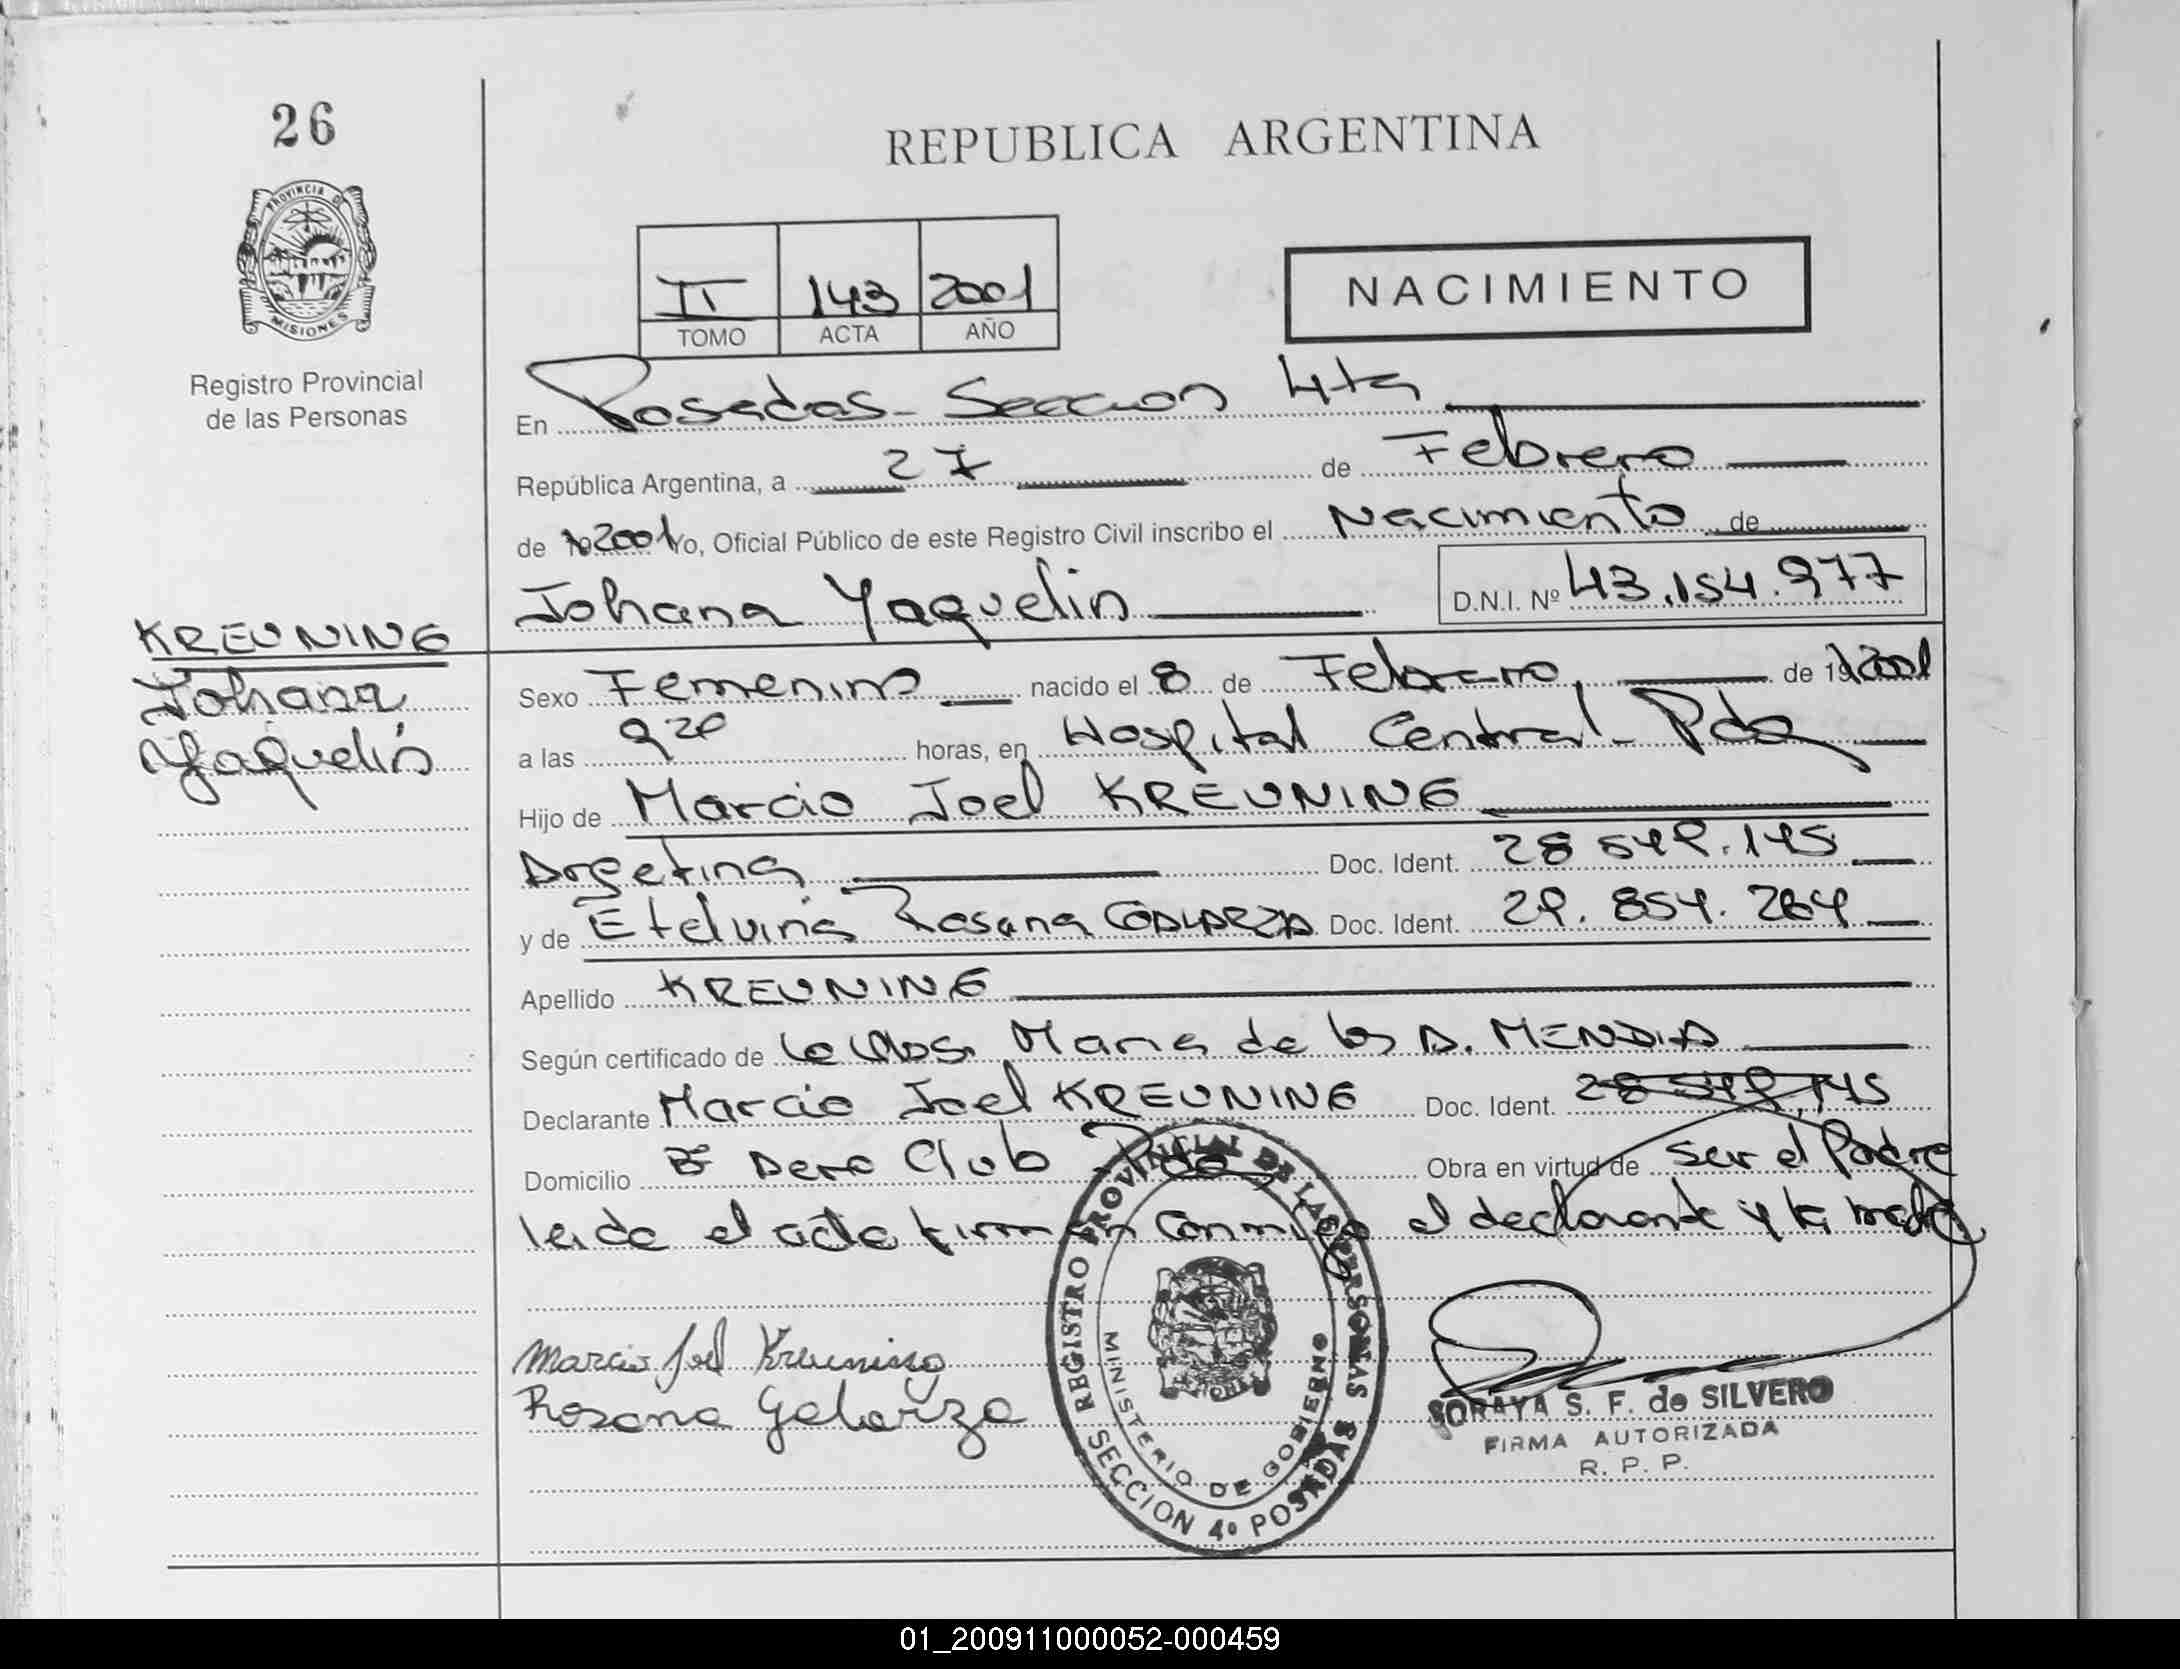 26
PROVINCIA DE
MISIONES
Registro Provincial
de las Personas
REPUBLICA ARGENTINA
II 143 2001
TOMO ACTA AÑO
NACIMIENTO
En Posadas - Seccion 4ta
República Argentina, a 27 de Febrero
de 2001 Yo, Oficial Público de este Registro Civil inscribo el Nacimiento de
Johana Yaquelin D.N.I. Nº 43.154.977
KREUNING
Johana
Yaquelin
Sexo Femenino nacido el 8 de Febrero de 2001
a las 9 20 horas, en Hospital Central - Pdas
Hijo de Marcio Joel KREUNING
Argetina Doc. Ident. 28 549.145
y de Etelvina Rosana GALARZA Doc. Ident. 29.854.264
Apellido KREUNING
Según certificado de la Obst. Maria de los A. MENDIA
Declarante Marcio Joel KREUNING Doc. Ident. 28 549.145
Domicilio Bº Aero Club - Pdas Obra en virtud de ser el Padre
leida el acta firman conmigo el declarante y la madre
Marcio Joel Kreuning
Rosana Galarza
REGISTRO PROVINCIAL DE LAS PERSONAS
MINISTERIO DE GOBIERNO
SECCION 4º POSADAS
SORAYA S. F. de SILVERO
FIRMA AUTORIZADA
R. P. P.
01_200911000052-000459